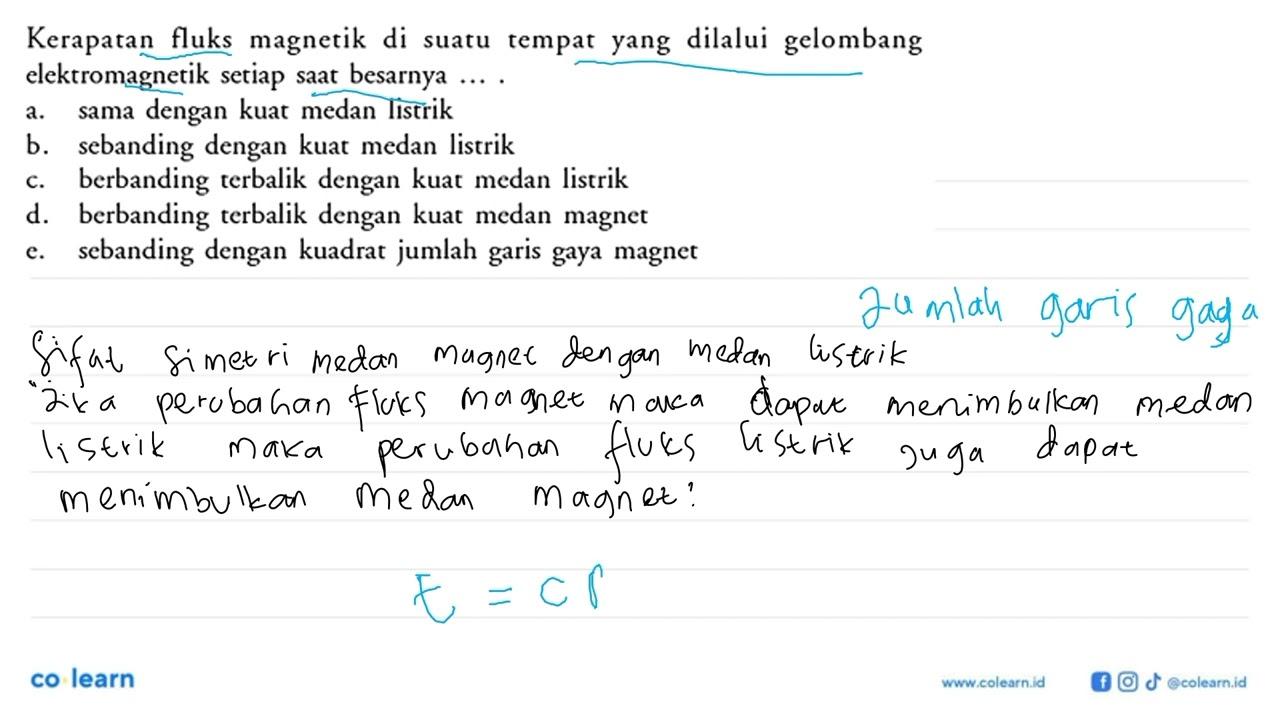 Kerapatan fluks magnetik di suatu tempat yang dilalui gelombang
elektromagnetik setiap saat besarnya ... .
a. sama dengan kuat medan listrik
b. sebanding dengan kuat medan listrik
c. berbanding terbalik dengan kuat medan listrik
d. berbanding terbalik dengan kuat medan magnet
e. sebanding dengan kuadrat jumlah garis gaya magnet
Jumlah garis gaya
Sifat simetri medan magnet dengan medan listrik
"Jika perubahan fluks magnet maka dapat menimbulkan medan
listrik maka perubahan fluks listrik juga dapat
menimbulkan medan magnet?
E = c
co learn
www.colearn.id
@colearn.id